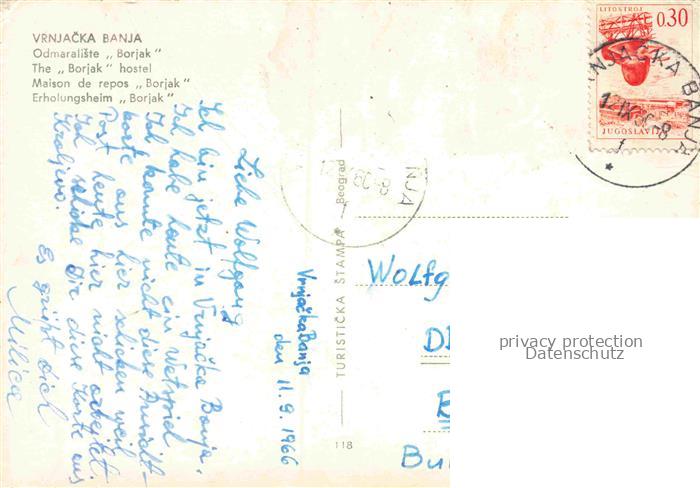 VRNJAČKA BANJA
Odmaralište „Borjak“
The „Borjak“ hostel
Maison de repos „Borjak“
Erholungsheim „Borjak“
Liebe Wolfgang
Ich bin jetzt in Vrnjačka Banja.
Ich habe heute ein
Ich konnte nicht diese
karte aus hier schicken weil
Post heute hier nicht arbejtet.
Ich schicke Dir diese Karte aus
Kraljevo.
Es grüpt dich
Milica
Vrnjačka Banja
den 11.9.1966
TURISTIČKA ŠTAMPA — Beograd
118
LITOSTROJ
0.30
JUGOSLAVIJA
NJAČKA BANJA
NJA
Wolfg
D
Bu
privacy protection
Datenschutz